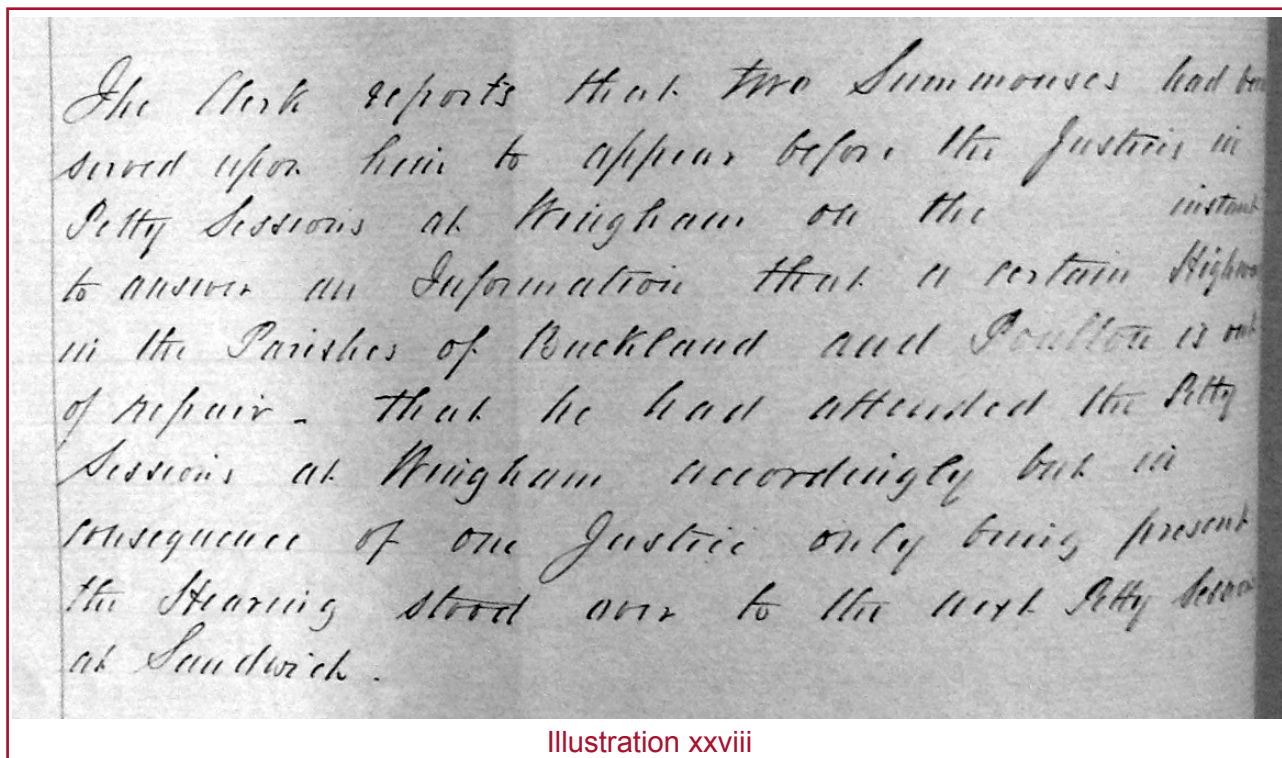 The Clerk reports that two Summonses had been
served upon him to appear before the Justices in
Petty Sessions at Wingham on the instant
to answer an Information that a certain Highway
in the Parishes of Buckland and Poulton is out
of repair - that he had attended the Petty
Sessions at Wingham accordingly but in
consequence of one Justice only being present
the Hearing stood over to the next Petty Sessions
at Sandwich.
Illustration xxviii